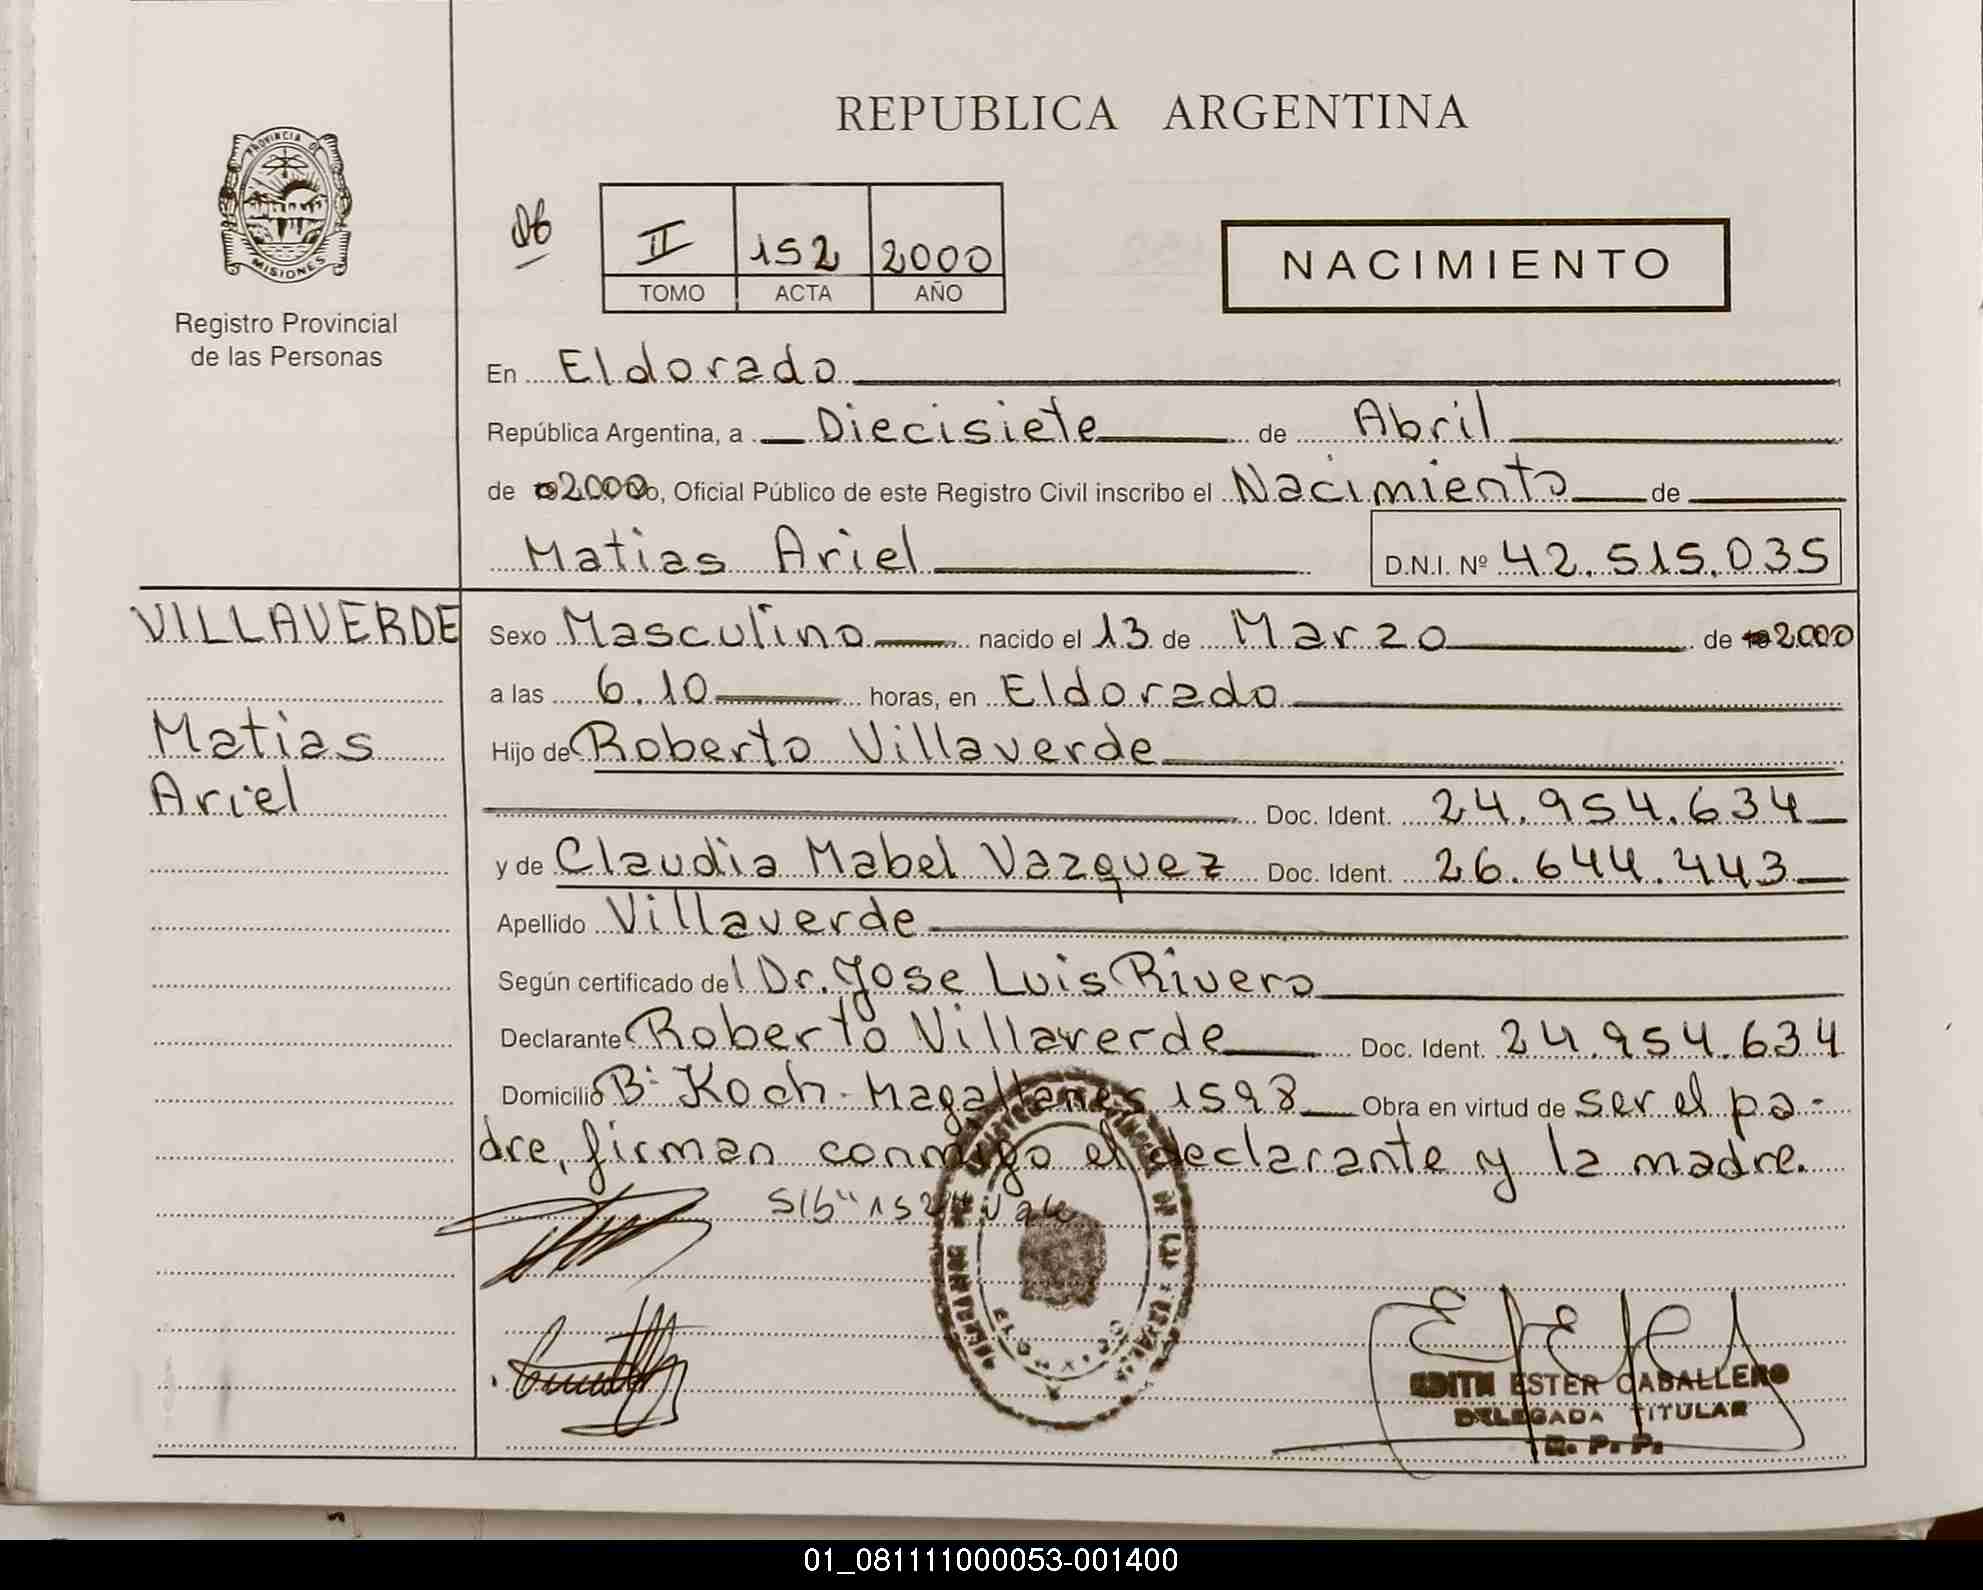 REPUBLICA ARGENTINA
PROVINCIA DE
MISIONES
Registro Provincial
de las Personas
06
II 152 2000
TOMO ACTA AÑO
NACIMIENTO
En Eldorado
República Argentina, a Diecisiete de Abril
de 2000 yo, Oficial Público de este Registro Civil inscribo el Nacimiento de
Matias Ariel D.N.I. Nº 42.515.035
VILLAVERDE
Matias
Ariel
Sexo Masculino nacido el 13 de Marzo de 2000
a las 6.10 horas, en Eldorado
Hijo de Roberto Villaverde
Doc. Ident. 24.954.634
y de Claudia Mabel Vazquez Doc. Ident. 26.644.443
Apellido Villaverde
Según certificado del Dr. Jose Luis Rivero
Declarante Roberto Villaverde Doc. Ident. 24.954.634
Domicilio Bº Koch - Magallanes 1598 Obra en virtud de ser el pa-
dre, firman conmigo el declarante y la madre.
S/b "152" vale
EDITH ESTER CABALLERO
DELEGADA TITULAR
R. P. P.
01_081111000053-001400